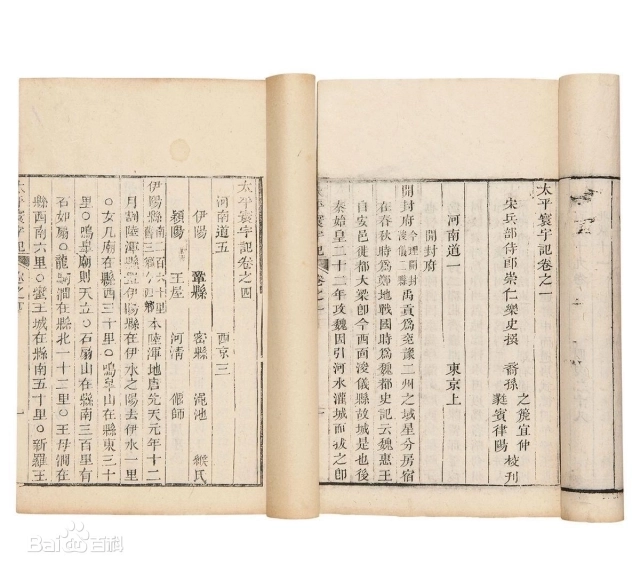 太平寰宇記卷之一
宋兵部侍郎崇仁樂史撰　裔孫
之篪宜仲
蕤賓律陽
校刋
河南道一　東京上
開封府
開封府
今理開封
浚儀二縣
禹貢爲兗豫二州之域星分房宿
在春秋時爲鄭地戰國時爲魏都史記云魏惠王
自安邑徙都大梁卽今西面浚儀縣故城是也後
秦始皇二十二年攻魏因引河水灌城而拔之卽
太平寰宇記
卷之一
太平寰宇記卷之四
河南道五　西京三
伊陽　鞏縣　密縣　澠池　緱氏
潁陽　王屋　河清　偃師
伊陽縣南二百六十里
本陸渾地唐先天元年十二
月割陸渾縣置伊陽縣在伊水之陽去伊水一里
○女几廟在縣西三十里○鳴臯山在縣東三十
里○鳴臯廟則天立○石扇山在縣南三百里有
石如扇○龍駒澗在縣北一十二里○王母澗在
縣西南六里○蠻王城在縣南五十里○新羅王
太平寰宇記
Bai百科